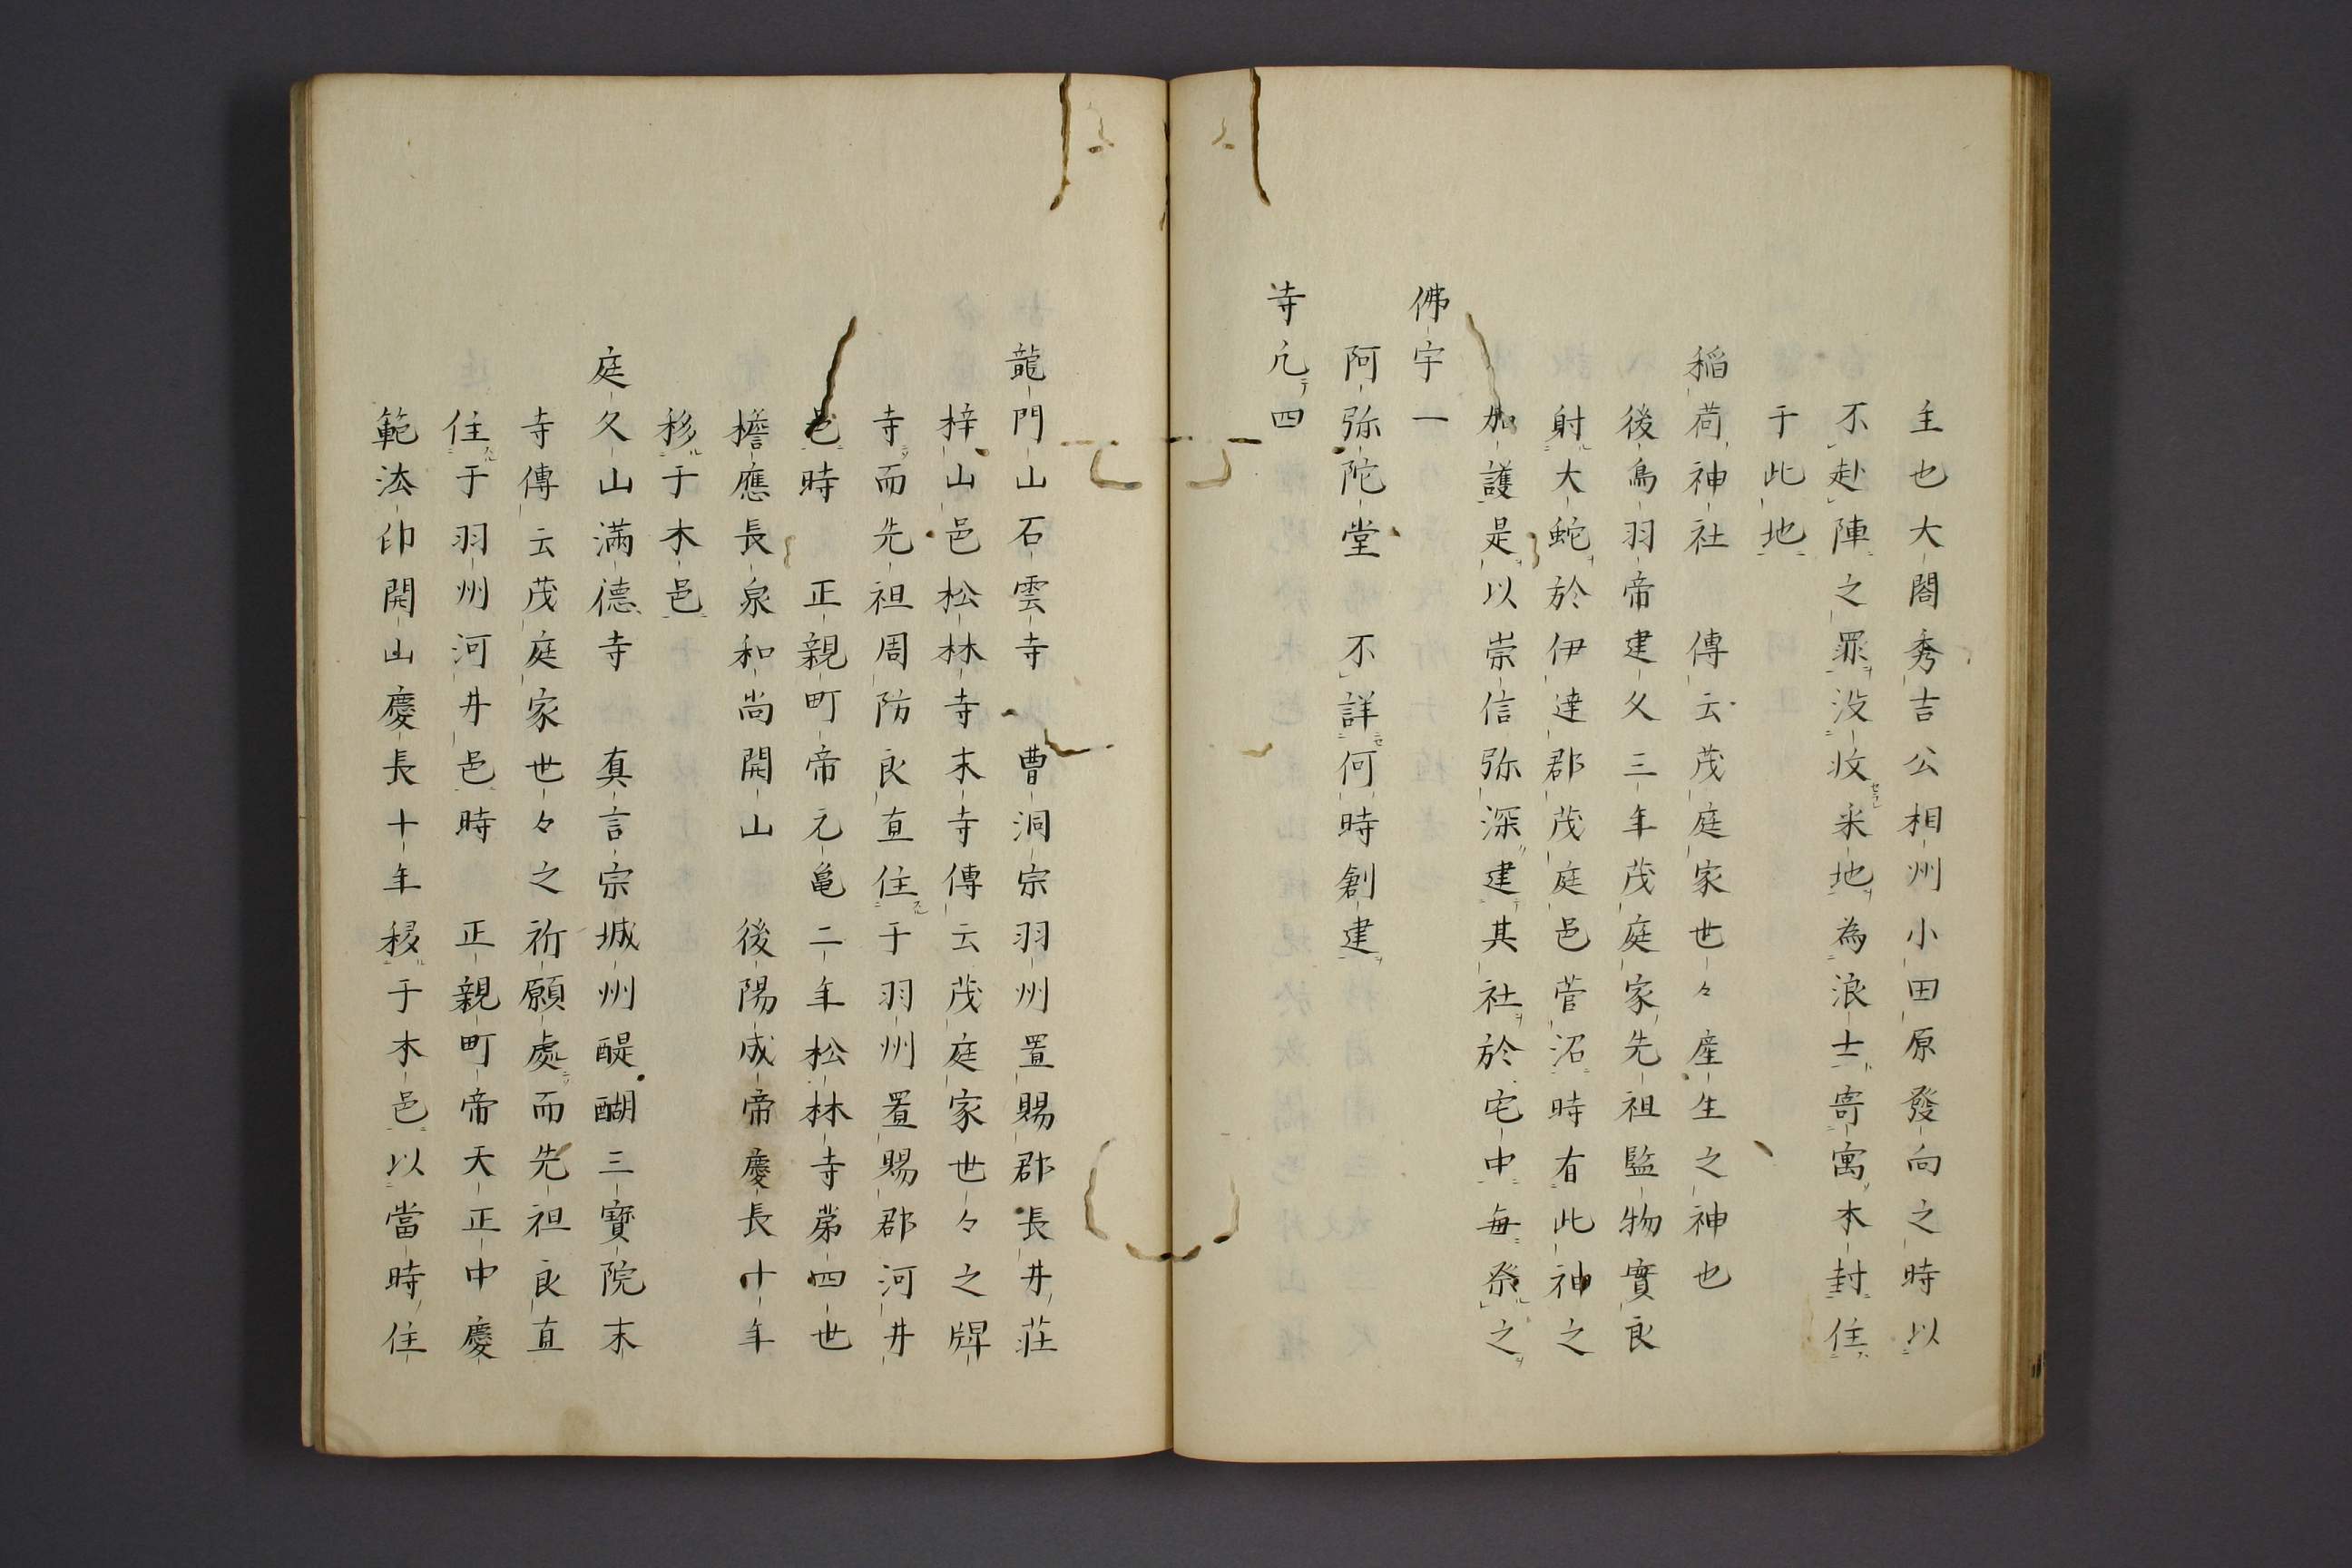 主也大閤秀吉公相州小田原發向之時以
不赴陣之罪没收采地為浪士寄寓本封住
于此地
稲荷神社　傳云茂庭家世々産生之神也
後鳥羽帝建久三年茂庭家先祖監物實良
射大蛇於伊達郡茂庭邑菅沼時有此神之
加護是以崇信弥深建其社於宅中毎祭之
佛宇一
阿弥陀堂　不詳何時創建
寺凢四
龍門山石雲寺　曹洞宗羽州置賜郡長井荘
梓山邑松林寺末寺傳云茂庭家世々之牌
寺而先祖周防良直住于羽州置賜郡河井
邑時　正親町帝元亀二年松林寺第四世
檐應長泉和尚開山　後陽成帝慶長十年
移于木邑
庭久山満德寺　真言宗城州醍醐三寶院末
寺傳云茂庭家世々之祈願處而先祖良直
住于羽州河井邑時　正親町帝天正中慶
範法印開山慶長十年移于木邑以當時住